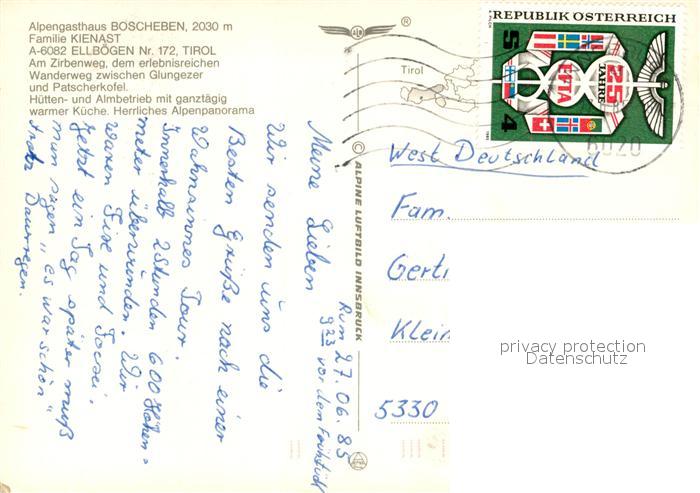 Alpengasthaus BOSCHEBEN, 2030 m
Familie KIENAST
A-6082 ELLBÖGEN Nr. 172, TIROL
Am Zirbenweg, dem erlebnisreichen
Wanderweg zwischen Glungezer
und Patscherkofel.
Hütten- und Almbetrieb mit ganztägig
warmer Küche. Herrliches Alpenpanorama
®
Tirol
REPUBLIK ÖSTERREICH
S 4
25 JAHRE
EFTA
1985
6020
© ALPINE LUFTBILD INNSBRUCK
Rum 27.06.85
923 vor dem Frühstück
Meine Lieben
Wir senden uns die
Besten Grüße nach einer
Wahnsinnes Tour.
Innerhalb 2 Stunden 600 Höhen=
meter überwunden. Wir
waren Fix und Focsi.
Jetzt ein Tag später muß
man sagen "es war schön"
trotz Dauerregen.
West Deutschland
Fam.
Gerti
Klein
5330
privacy protection
Datenschutz